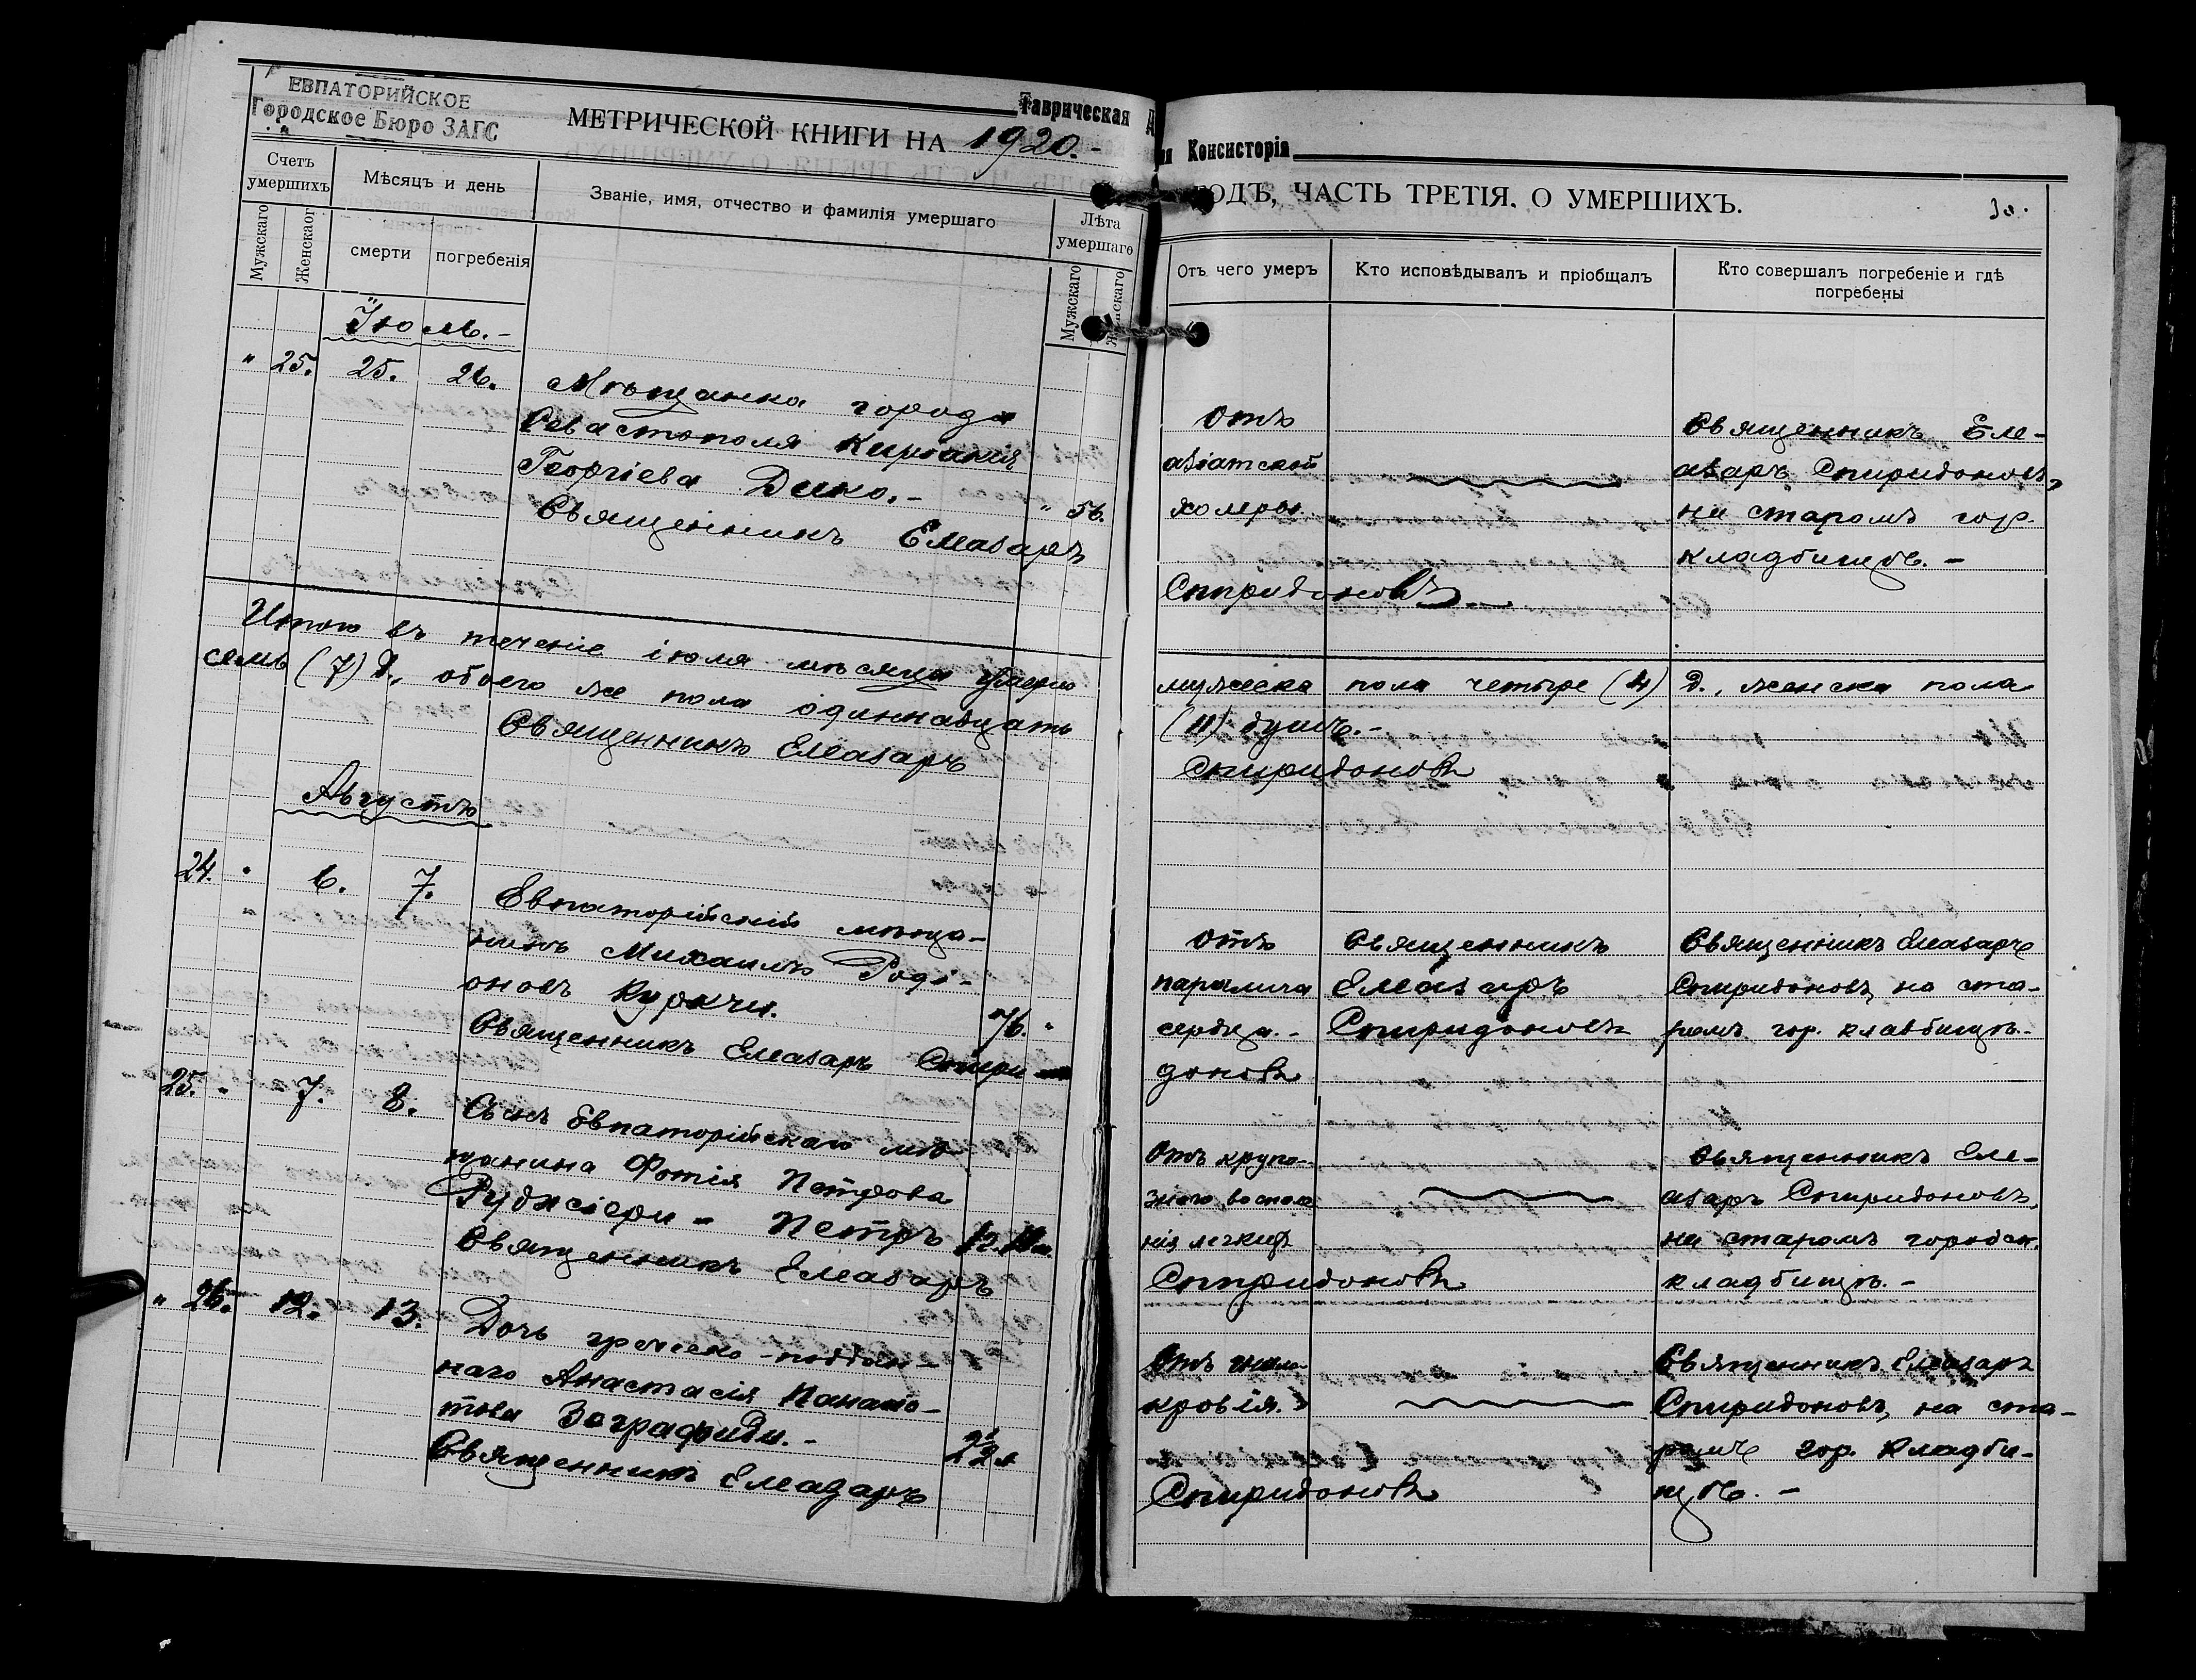 ЕВПАТОРИЙСКОЕ
Городское Бюро ЗАГС
Таврическая Д
МЕТРИЧЕСКОЙ КНИГИ НА 1920.-
Счетъ умершихъ
Мѣсяцъ и день
Званіе, имя, отчество и фамилія умершаго
Лѣта умершаго
Мужскаго
Женскаог
смерти
погребенія
Мужскаго
Женскаго
Іюль.-
" 25. 25. 26. Мѣщанка города
Севастополя Киріакія
Георгіева Дико.- " 56.
Священникъ Елеазаръ
Итого въ теченіе іюля мѣсяца умерло
семь (7) д., обоего же пола одиннадцать
Священникъ Елеазаръ
Августъ
24. " 6. 7. Евпаторійскій мѣща-
нинъ Михаилъ Роді-
оновъ Курачи. 76. "
Священникъ Елеазаръ Спири-
25. " 7. 8. Сынъ Евпаторійскаго мѣ-
щанина Фотія Петрова
Петръ
Священникъ Елеазаръ
" 26. 12. 13. Дочь греческо-поддан-
наго Анастасія Панаіо-
това Зографиди.-
Священникъ Елеазаръ
ія Консисторія
ГОДЪ, ЧАСТЬ ТРЕТІЯ. О УМЕРШИХЪ.
Отъ чего умеръ
Кто исповѣдывалъ и пріобщалъ
Кто совершалъ погребеніе и гдѣ погребены
Отъ Священникъ Еле-
азіатской азаръ Спиридоновъ,
холеры. на старомъ гор.
кладбищѣ.-
Спиридоновъ
мужеска пола четыре (4) д., женска пола
(11) душъ.-
Спиридоновъ
Отъ Священникъ Священникъ Елеазаръ
паралича Елеазаръ Спиридоновъ, на ста-
сердца.- Спиридоновъ ромъ гор. кладбищѣ.-
доновъ
Отъ крупо- Священникъ Еле-
знаго воспале азаръ Спиридоновъ,
нія легкихъ на старомъ городск.
Спиридоновъ кладбищѣ.-
Отъ Священникъ Елеазаръ
кровія. Спиридоновъ, на ста-
ромъ гор. кладби-
Спиридоновъ щѣ.-